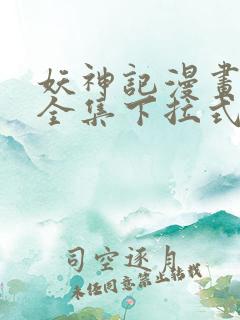 妖神記漫畫
全集下拉式
司空逐月
未经同意禁止转载